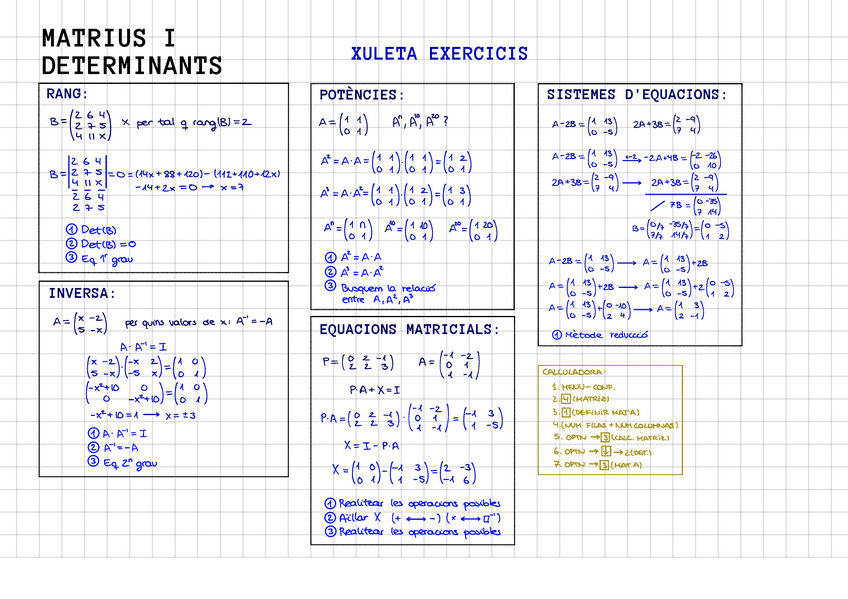 MATRIUS I
DETERMINANTS
XULETA EXERCICIS
RANG:
B=(2 6 4
2 7 5
4 11 x) x per tal q rang(B)=2
B=|2 6 4
2 7 5
4 11 x
2 6 4
2 7 5|=0=(14x+88+120)-(112+110+12x)
-14+2x=0 → x=7
① Det(B)
② Det(B)=0
③ Eq 1r grau
INVERSA:
A=(x -2
5 -x) per quins valors de x: A⁻¹=-A
A·A⁻¹=I
(x -2
5 -x)·(-x 2
-5 x)=(1 0
0 1)
(-x²+10 0
0 -x²+10)=(1 0
0 1)
-x²+10=1 → x=±3
① A·A⁻¹=I
② A⁻¹=-A
③ Eq 2n grau
POTÈNCIES:
A=(1 1
0 1) Aⁿ, A¹⁰, A²⁰?
A²=A·A=(1 1
0 1)·(1 1
0 1)=(1 2
0 1)
A³=A·A²=(1 1
0 1)·(1 2
0 1)=(1 3
0 1)
Aⁿ=(1 n
0 1) A¹⁰=(1 10
0 1) A²⁰=(1 20
0 1)
① A²=A·A
② A³=A·A²
③ Busquem la relació
entre A, A², A³
EQUACIONS MATRICIALS:
P=(0 2 -1
2 2 3) A=(-1 -2
0 1
1 -1)
P·A+X=I
P·A=(0 2 -1
2 2 3)·(-1 -2
0 1
1 -1)=(-1 3
1 -5)
X=I-P·A
X=(1 0
0 1)-(-1 3
1 -5)=(2 -3
-1 6)
① Realitzar les operacions posibles
② Aïllar X (+ ↔ -) (× ↔ □⁻¹)
③ Realitzar les operacions posibles
SISTEMES D'EQUACIONS:
A-2B=(1 13
0 -5) 2A+3B=(2 -9
7 4)
A-2B=(1 13
0 -5) x-2→ -2A+4B=(-2 -26
0 10)
2A+3B=(2 -9
7 4) → 2A+3B=(2 -9
7 4)
/ 7B=(0 -35
7 14)
B=(0/7 -35/7
7/7 14/7)=(0 -5
1 2)
A-2B=(1 13
0 -5) → A=(1 13
0 -5)+2B
A=(1 13
0 -5)+2B → A=(1 13
0 -5)+2(0 -5
1 2)
A=(1 13
0 -5)+(0 -10
2 4) → A=(1 3
2 -1)
① Mètode reducció
CALCULADORA:
1. MENÚ-CONF.
2. 4 (MATRIZ)
3. 1 (DEFINIR MATA)
4. (NUM. FILAS + NUM COLUMNAS)
5. OPTN → 3 (CALC. MATRIZ)
6. OPTN → ↓ → 2 (DET.)
7. OPTN → 3 (MAT A)